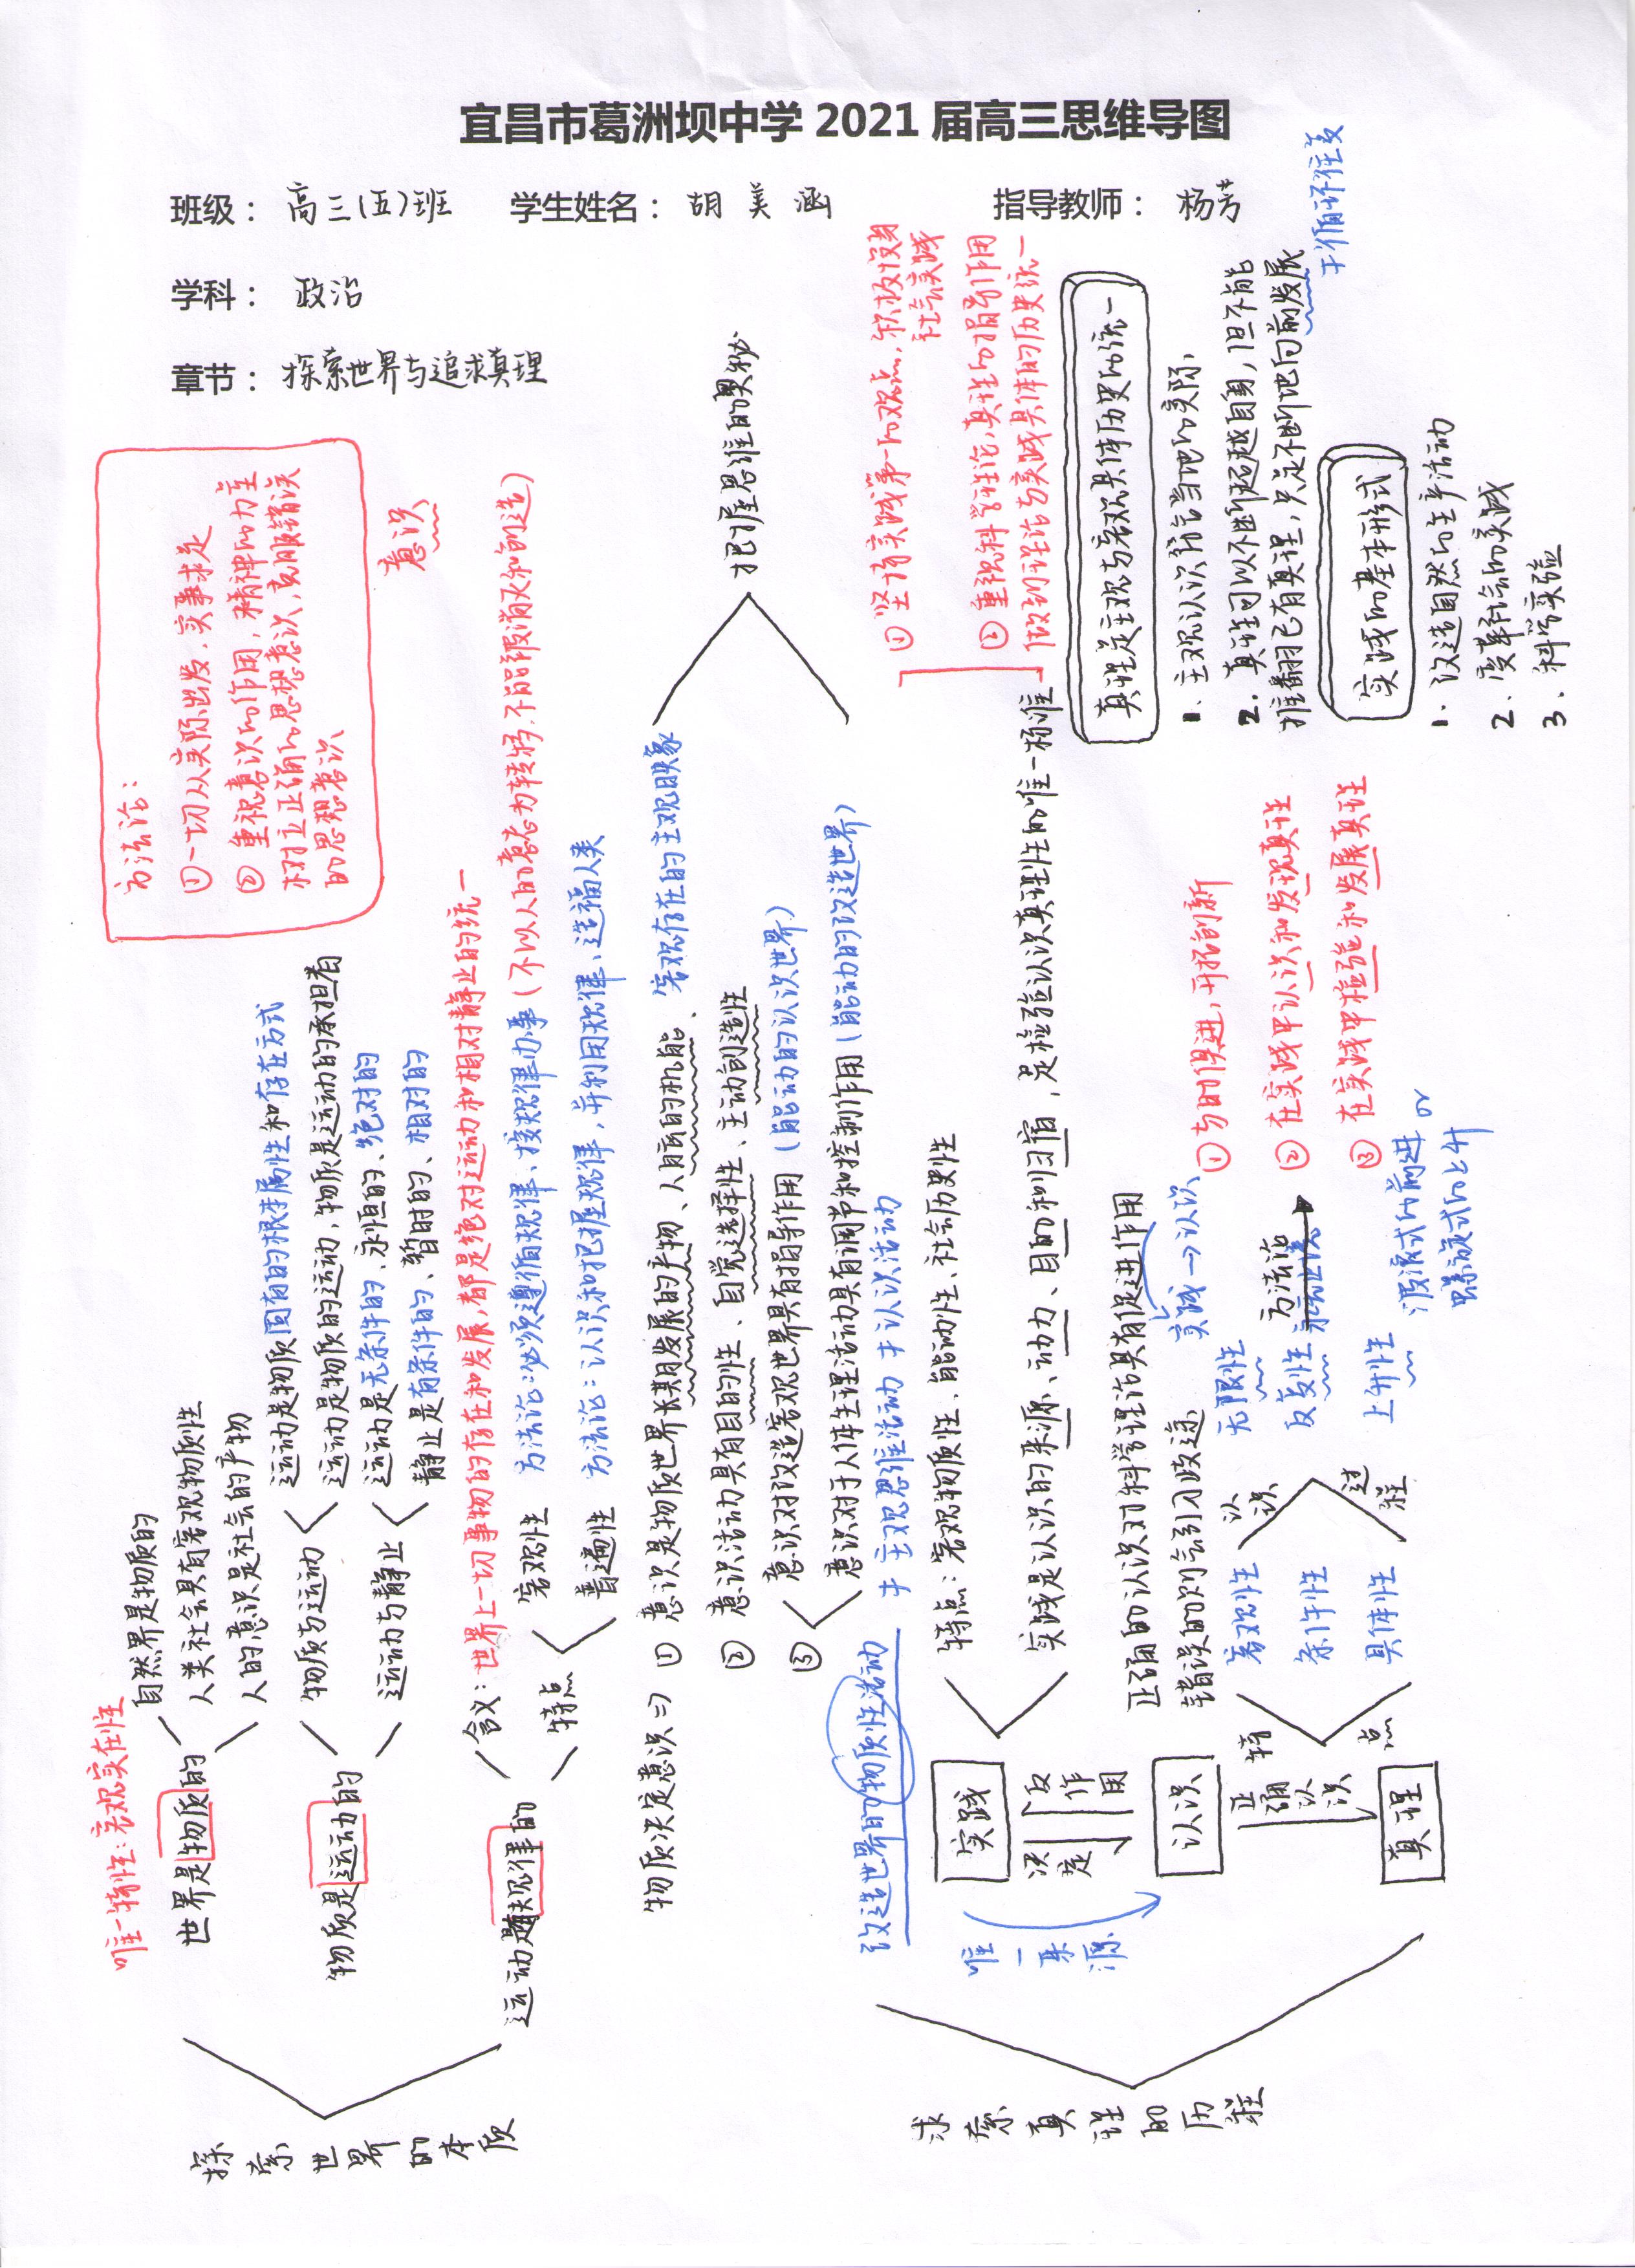 宜昌市葛洲坝中学 2021 届高三思维导图
班级： 高三(五)班 学生姓名： 胡美涵 指导教师： 杨芳
学科： 政治
章节： 探索世界与追求真理
探索世界的本质
唯一特性：客观实在性
世界是物质的
自然界是物质的
人类社会具有客观物质性
人的意识是社会的产物
物质是运动的
物质与运动
运动是物质固有的根本属性和存在方式
运动是物质的运动，物质是运动的承担者
运动与静止
运动是无条件的、永恒的、绝对的
静止是有条件的、暂时的、相对的
运动是有规律的
含义：世界上一切事物的存在和发展，都是绝对运动和相对静止的统一
特点
客观性 方法论：必须遵循规律、按规律办事（不以人的意志为转移，不能被消灭和创造）
普遍性 方法论：认识和把握规律，并利用规律、造福人类
方法论：
①一切从实际出发，实事求是
②重视意识的作用，精神的力量
树立正确的思想意识，克服错误
的思想意识
意识
把握思维的奥秘
物质决定意识⇒
① 意识是物质世界长期发展的产物、人脑的机能、客观存在的主观映象
② 意识活动具有目的性、自觉选择性、主动创造性
③ 意识对改造客观世界具有指导作用（能动的认识世界）
意识对于人体生理活动具有调节和控制作用（能动的改造世界）
求索真理的历程
改造世界的物质性活动 ≠ 主观思维活动 ≠ 认识活动
实践
特点：客观物质性、能动性、社会历史性
实践是认识的来源、动力、目的和归宿，是检验认识真理性的唯一标准
①坚持实践第一的观点，积极投身
社会实践
②重视科学理论，真理的指导作用
做到理论与实践具体的历史统一
决定
反作用
唯一来源
认识
正确的认识对科学理论具有促进作用
错误的则会引入歧途
实践→认识
正确认识
真理
特点
客观性
条件性
具体性
认识过程
无限性
反复性
上升性
方法论
①与时俱进，开拓创新
②在实践中认识和发现真理
③在实践中检验和发展真理
波浪式的前进or
螺旋式的上升
真理是主观与客观具体历史的统一
1. 主观认识符合当地的实际
2. 真理可以不断超越自身，但不能
推翻已有真理，只是不断地向前发展
≠循环往复
实践的基本形式
1. 改造自然的生产活动
2. 变革社会的实践
3. 科学实验